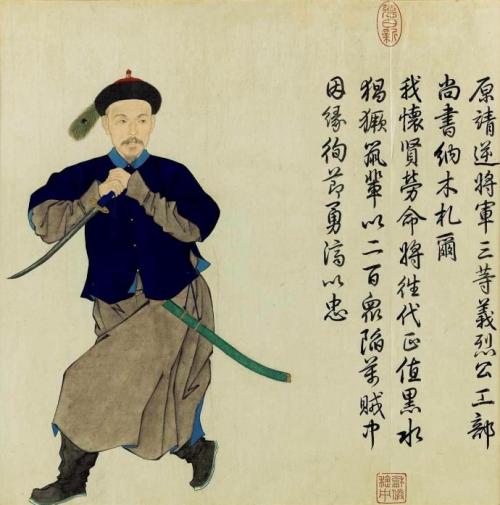 原靖逆將軍三等義烈公工部
尚書納木札爾
我懷賢勞命將往代正值黑水
猖獗鼠輩以二百衆陷萬賊中
因緣徇節勇濟以忠